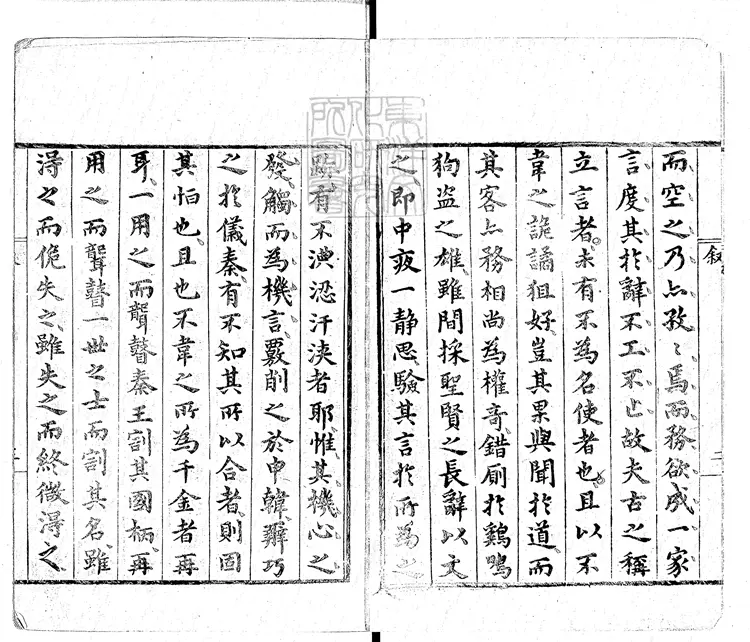 敘
二
而空之乃亦孜〻焉而務欲成一家
言度其扵辭不工不止故夫古之稱
立言者未有不為名使者也且以不
韋之詭譎狙好豈其果與聞扵道而
其客亦務相尚為權奇錯廁扵鷄鳴
狗盗之雄雖間採聖賢之長辭以文
之即中夜一静思驗其言扵所為之
跡有不淟涊汗浹者耶惟其機心之
發觸而為機言覈削之於申韓辯巧
之扵儀秦有不知其所以合者則固
其怕也且也不韋之所為千金者再
耳一用之而聾瞽秦王割其國柄再
用之而聾瞽一世之士而割其名雖
淂之而俛失之雖失之而終微淂之